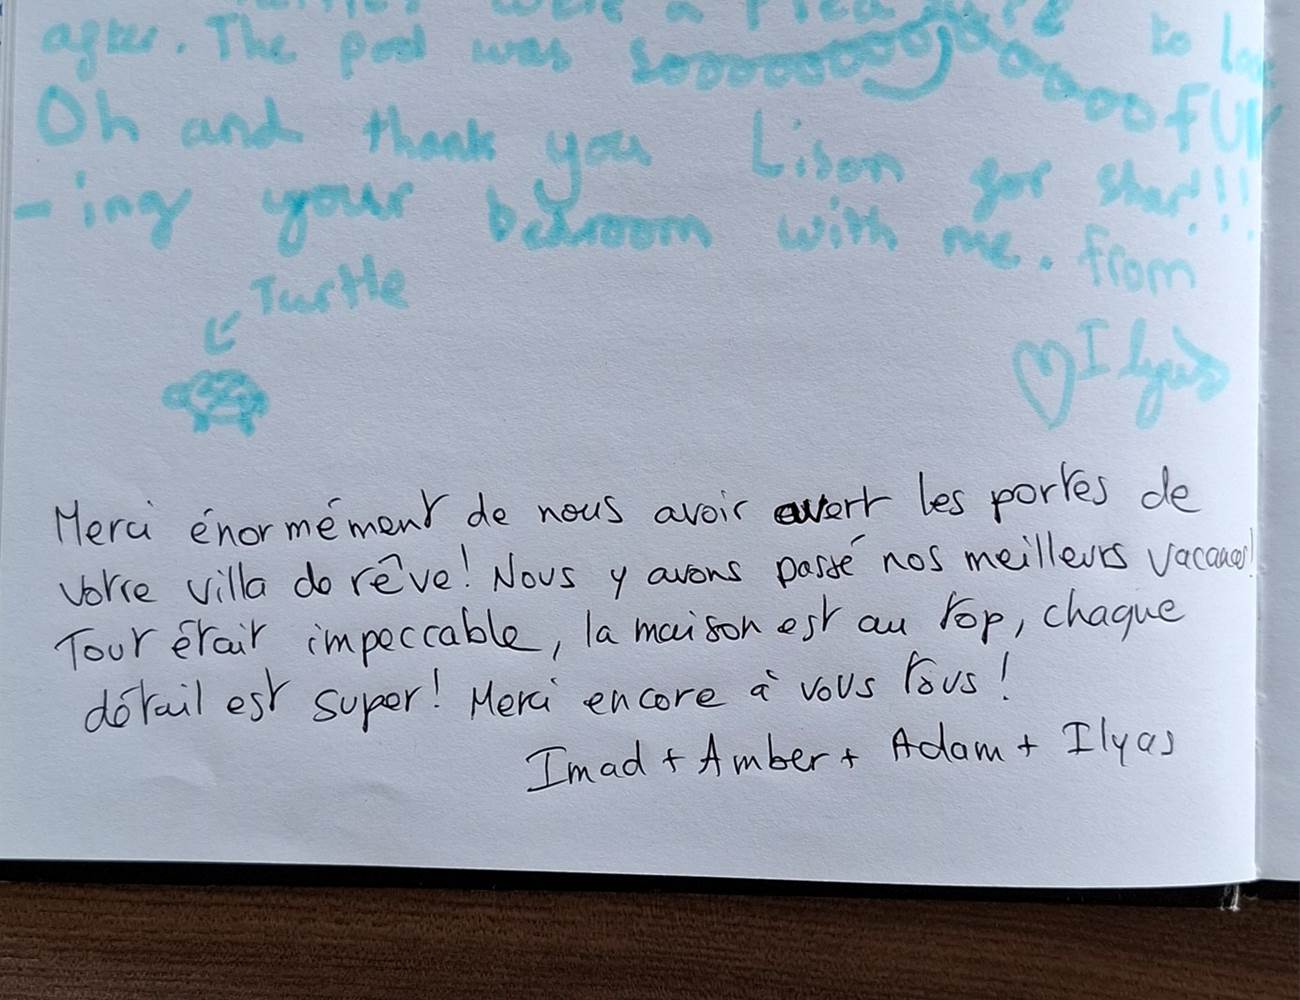 were a pleasure to look
after. The pool was soooooooooooooo fun
Oh and thank you Lison for shar!!!
-ing your bedroom with me. From
Turtle
♡ Ilyas
Merci énormément de nous avoir ouvert les portes de
votre villa de rêve! Nous y avons passé nos meilleurs vacances!
Tout était impeccable, la maison est au top, chaque
détail est super! Merci encore à vous tous!
Imad + Amber + Adam + Ilyas